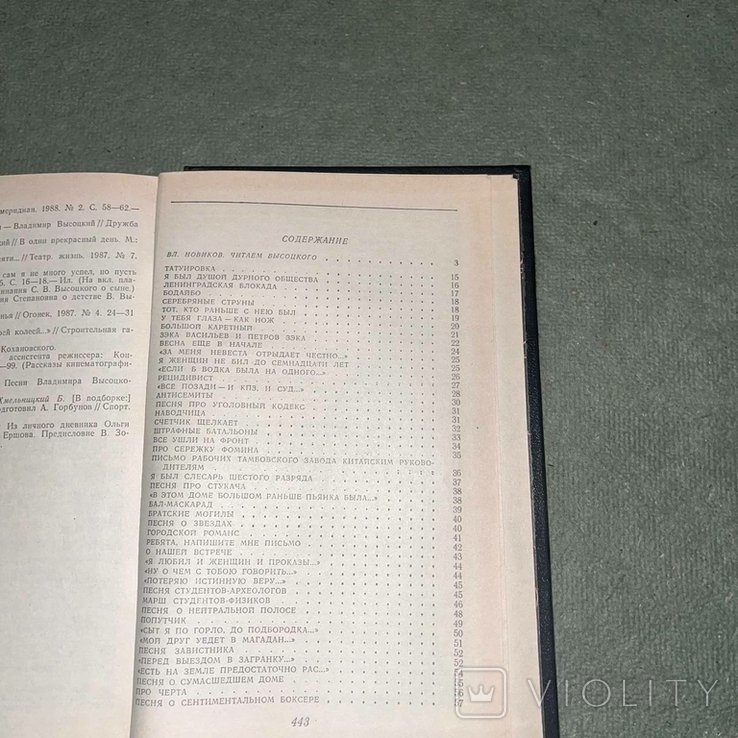 меридиан. 1988. № 2. С. 58—62.—
— Владимир Высоцкий // Дружба
кий // В один прекрасный день. М.:
яти... // Театр. жизнь. 1987. № 7.
сам я не много успел, но пусть
5. С. 16—18.— Ил. (На вкл. пла-
инания С. В. Высоцкого о сыне.)
ия Степановна о детстве В. Вы-
нья // Огонек. 1987. № 4. 24—31
ей колеей...» // Строительная га-
Кохановского.
ассистента режиссера: Кон-
—99. (Рассказы кинематографи-
Песни Владимира Высоцко-
Хмельницкий Б. [В подборке:]
подготовил А. Горбунов // Спорт.
Из личного дневника Ольги
Ершова. Предисловие В. Зо-
СОДЕРЖАНИЕ
ВЛ. НОВИКОВ. ЧИТАЕМ ВЫСОЦКОГО 3
ТАТУИРОВКА
Я БЫЛ ДУШОЙ ДУРНОГО ОБЩЕСТВА 15
ЛЕНИНГРАДСКАЯ БЛОКАДА 16
БОДАЙБО 17
СЕРЕБРЯНЫЕ СТРУНЫ 18
ТОТ, КТО РАНЬШЕ С НЕЮ БЫЛ 18
У ТЕБЯ ГЛАЗА — КАК НОЖ 19
БОЛЬШОЙ КАРЕТНЫЙ 20
ЗЭКА ВАСИЛЬЕВ И ПЕТРОВ ЗЭКА 21
ВЕСНА ЕЩЕ В НАЧАЛЕ 22
«ЗА МЕНЯ НЕВЕСТА ОТРЫДАЕТ ЧЕСТНО...» 24
Я ЖЕНЩИН НЕ БИЛ ДО СЕМНАДЦАТИ ЛЕТ 25
«ЕСЛИ Б ВОДКА БЫЛА НА ОДНОГО...» 25
РЕЦИДИВИСТ 26
«ВСЕ ПОЗАДИ — И КПЗ, И СУД...» 27
АНТИСЕМИТЫ 28
ПЕСНЯ ПРО УГОЛОВНЫЙ КОДЕКС 30
НАВОДЧИЦА 31
СЧЕТЧИК ЩЕЛКАЕТ 31
ШТРАФНЫЕ БАТАЛЬОНЫ 32
ВСЕ УШЛИ НА ФРОНТ 33
ПРО СЕРЕЖКУ ФОМИНА 34
ПИСЬМО РАБОЧИХ ТАМБОВСКОГО ЗАВОДА КИТАЙСКИМ РУКОВО- 35
ДИТЕЛЯМ
Я БЫЛ СЛЕСАРЬ ШЕСТОГО РАЗРЯДА 36
ПЕСНЯ ПРО СТУКАЧА 37
«В ЭТОМ ДОМЕ БОЛЬШОМ РАНЬШЕ ПЬЯНКА БЫЛА...» 38
БАЛ-МАСКАРАД 38
БРАТСКИЕ МОГИЛЫ 39
ПЕСНЯ О ЗВЕЗДАХ 40
ГОРОДСКОЙ РОМАНС 40
РЕБЯТА, НАПИШИТЕ МНЕ ПИСЬМО 41
О НАШЕЙ ВСТРЕЧЕ 42
«Я ЛЮБИЛ И ЖЕНЩИН И ПРОКАЗЫ...» 43
«НУ О ЧЕМ С ТОБОЮ ГОВОРИТЬ...» 44
«ПОТЕРЯЮ ИСТИННУЮ ВЕРУ...» 44
ПЕСНЯ СТУДЕНТОВ-АРХЕОЛОГОВ 45
МАРШ СТУДЕНТОВ-ФИЗИКОВ 46
ПЕСНЯ О НЕЙТРАЛЬНОЙ ПОЛОСЕ 48
ПОПУТЧИК 49
«СЫТ Я ПО ГОРЛО, ДО ПОДБОРОДКА...» 50
«МОЙ ДРУГ УЕДЕТ В МАГАДАН...» 51
ПЕСНЯ ЗАВИСТНИКА 52
«ПЕРЕД ВЫЕЗДОМ В ЗАГРАНКУ...» 52
«ЕСТЬ НА ЗЕМЛЕ ПРЕДОСТАТОЧНО РАС...»
ПЕСНЯ О СУМАСШЕДШЕМ ДОМЕ
ПРО ЧЕРТА
ПЕСНЯ О СЕНТИМЕНТАЛЬНОМ БОКСЕРЕ
443
VIOLITY